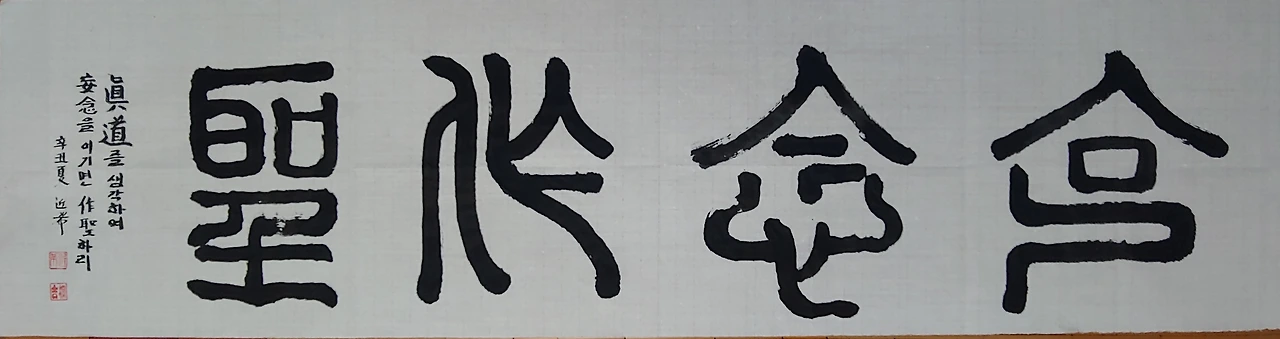 克念作聖
眞道를 생각하여
妄念을 이기면 作聖하리
辛丑夏